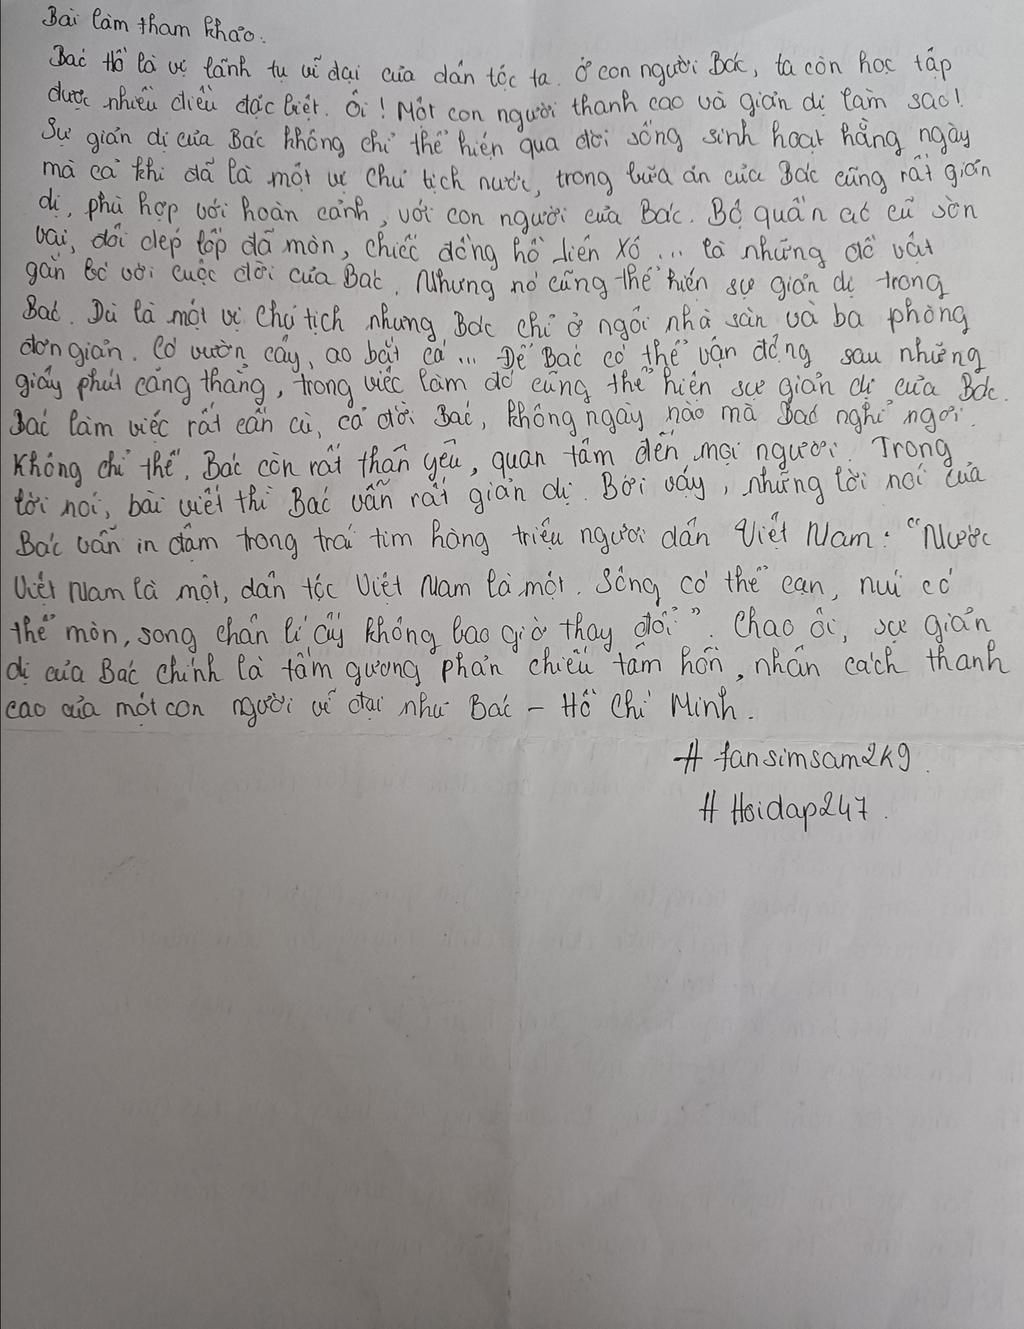 Bài làm tham khảo:
Bác Hồ là vị lãnh tụ vĩ đại của dân tộc ta. Ở con người Bác, ta còn học tập
được nhiều điều đặc biệt. Ôi! Một con người thanh cao và giản dị làm sao!
Sự giản dị của Bác không chỉ thể hiện qua đời sống sinh hoạt hằng ngày
mà cả khi đã là một vị Chủ tịch nước, trong bữa ăn của Bác cũng rất giản
dị, phù hợp với hoàn cảnh, với con người của Bác. Bộ quần áo cũ sờn
vai, đôi dép lốp đã mòn, chiếc đồng hồ Liên Xô... là những đồ vật
gắn bó với cuộc đời của Bác. Nhưng nó cũng thể hiện sự giản dị trong
Bác. Dù là một vị Chủ tịch nhưng Bác chỉ ở ngôi nhà sàn và ba phòng
đơn giản. Có vườn cây, ao bắt cá... Để Bác có thể vận động sau những
giây phút căng thẳng, trong việc làm đó cũng thể hiện sự giản dị của Bác.
Bác làm việc rất cần cù, cả đời Bác, không ngày nào mà Bác nghỉ ngơi.
Không chỉ thế, Bác còn rất thân yêu, quan tâm đến mọi người. Trong
lời nói, bài viết thì Bác vẫn rất giản dị. Bởi vậy, những lời nói của
Bác vẫn in đậm trong trái tim hàng triệu người dân Việt Nam: "Nước
Việt Nam là một, dân tộc Việt Nam là một. Sông có thể cạn, núi có
thể mòn, song chân lí ấy không bao giờ thay đổi". Chao ôi, sự giản
dị của Bác chính là tấm gương phản chiếu tâm hồn, nhân cách thanh
cao của một con người vĩ đại như Bác - Hồ Chí Minh.
# fansimsam2k9.
# Hoidap247.